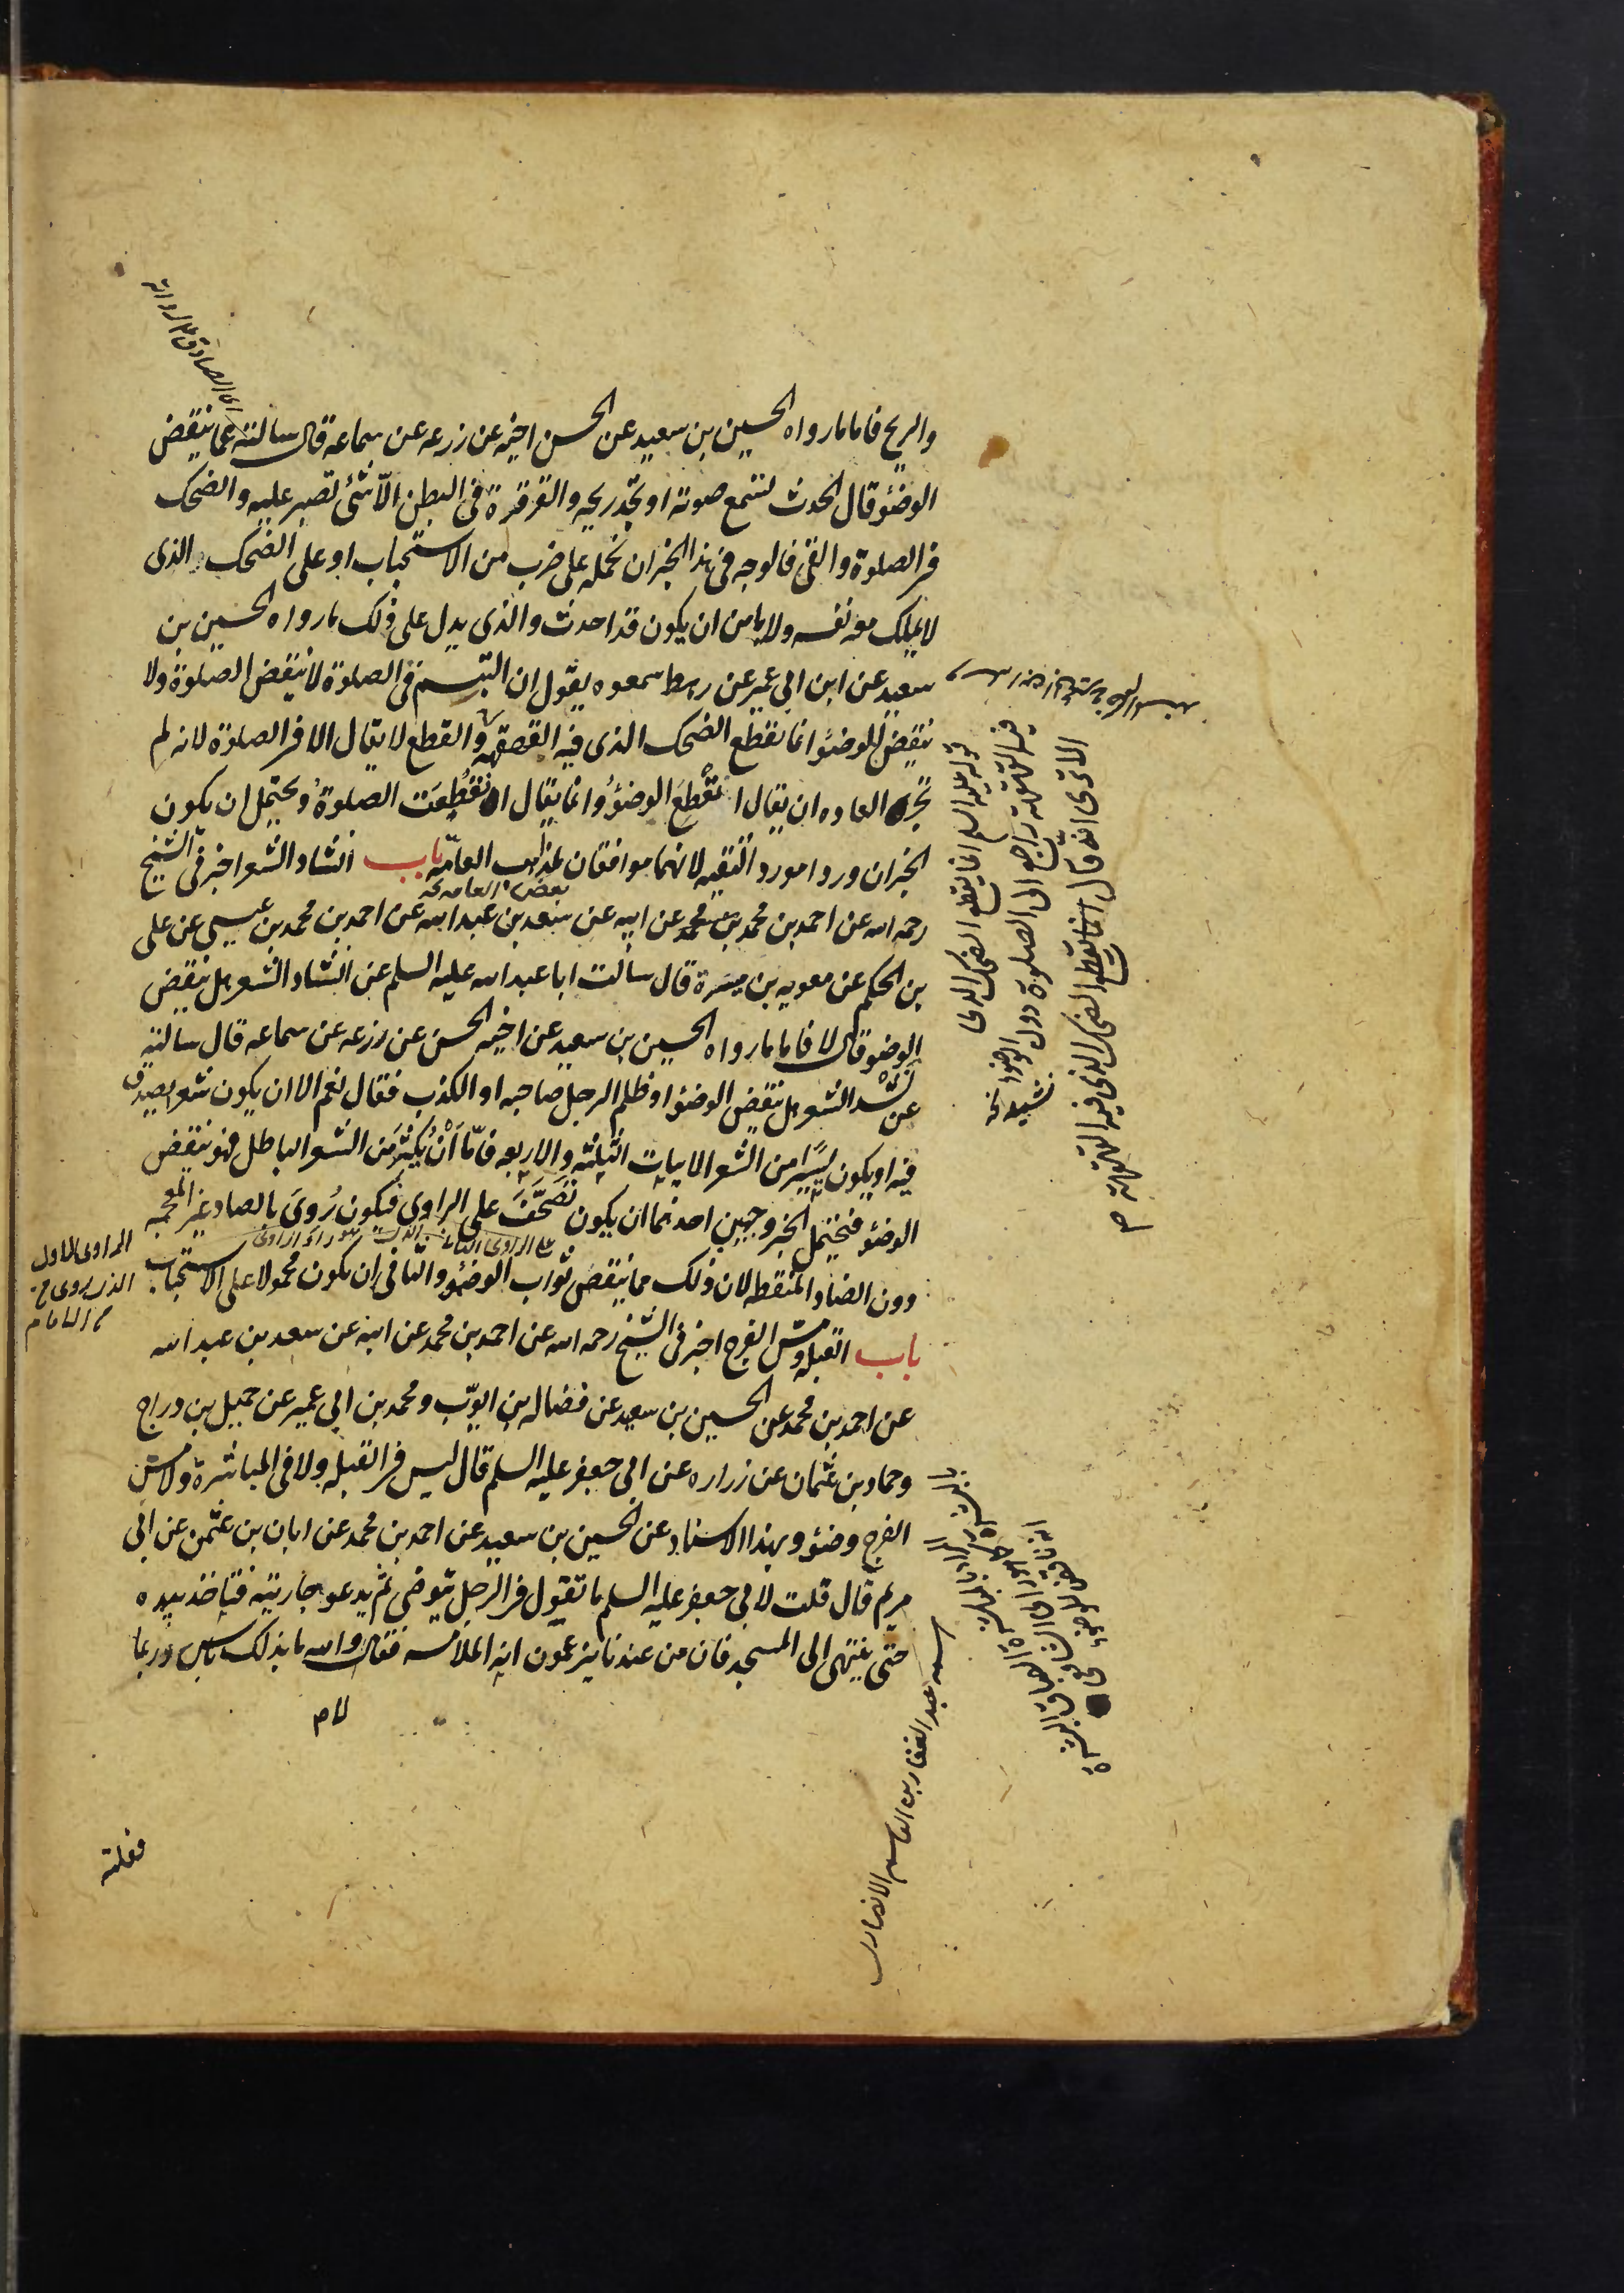 والريح فاما ما رواه الحسين بن سعيد عن الحسن اخيه عن زرعه عن سماعه قال سالته عما ينقض
الوضئو قال الحدث تسمع صوته او تجد ريحه والقرقرة فى البطن الّا شئ تصبر عليه والضحك
فى الصلوة والقى فالوجه فى هذا الخبر ان نحمله على ضرب من الاستحباب او على الضحك الذى
لا يملك معه نفسه ولا يامن ان يكون قد احدث والذى يدل على ذلك ما رواه الحسين بن
سعيد عن ابن ابى عمير عن رهط سمعوه يقول ان التبسم فى الصلوة لا ينقض الصلوة ولا
ينقض للوضئو انما يقطع الضحك الذى فيه القهقهه والقطع لا يقال الا فى الصلوة لانه لم
تجر العاده ان يقال انقطع الوضئو وانما يقال انقطعت الصلوة ويحتمل ان يكون
الخبران وردا مورد التقيه لانهما موافقان لمذاهب العامّه باب انشاد الشعر اخبرنى الشيخ
بعض العامه
رحمه الله عن احمد بن محمد بن محمد عن ابيه عن سعد بن عبد الله عن احمد بن محمد بن عيسى عن على
بن الحكم عن معويه بن ميسرة قال سالت ابا عبد الله عليه السلم عن انشاد الشعر هل ينقض
الوضو قال لا فاما ما رواه الحسين بن سعيد عن اخيه الحسن عن زرعه عن سماعه قال سالته
عن نشد الشعر هل ينقض الوضئو او ظلم الرجل صاحبه او الكذب فقال نعم الا ان يكون شعر يصدق
فيه او يكون يسيرا من الشعر الابيات الثلثه والاربعه فامّا ان يكثر من الشعر الباطل فهو ينقض
الوضئو فيحتمل الخبر وجهين احدهما ان يكون تصحّف على الراوى فيكون روى بالصاد غير المعجمه
دون الضاد المنقطه لان ذلك مما ينقص ثواب الوضئو والثانى ان يكون محمولا على الاستحباب
باب القبله ومسّ الفرج اخبرنى الشيخ رحمه الله عن احمد بن محمد عن ابيه عن سعد بن عبد الله
عن احمد بن محمد عن الحسين بن سعيد عن فضاله بن ايوّب ومحمد بن ابى عمير عن جميل بن دراج
وحماد بن عثمان عن زراره عن ابى جعفر عليه السلم قال ليس فى القبله ولا فى المباشرة ولا مسّ
الفرج وضئو وبهذا الاسناد عن الحسين بن سعيد عن احمد بن محمد عن ابان بن عثمن عن ابى
مريم قال قلت لابى جعفر عليه السلم ما تقول فى الرجل يتوضى ثم يدعو جاريته فتاخذ بيده
حتى ينتهى الى المسجد فان من عندنا يزعمون انه الملامسه فقال لا والله ما بذلك باس وربما
فعلته
قوله عليه السلم انما يقطع الضحك الذى
فيه القهقهه راجع الى الصلوة دون الوضوا
الا ترى انه قال انما يقطع الضحك الذى فيه القهقهه
الراوى الاول
الذى يروى
عن الامام
عبد الغفار بن القاسم الانصارى